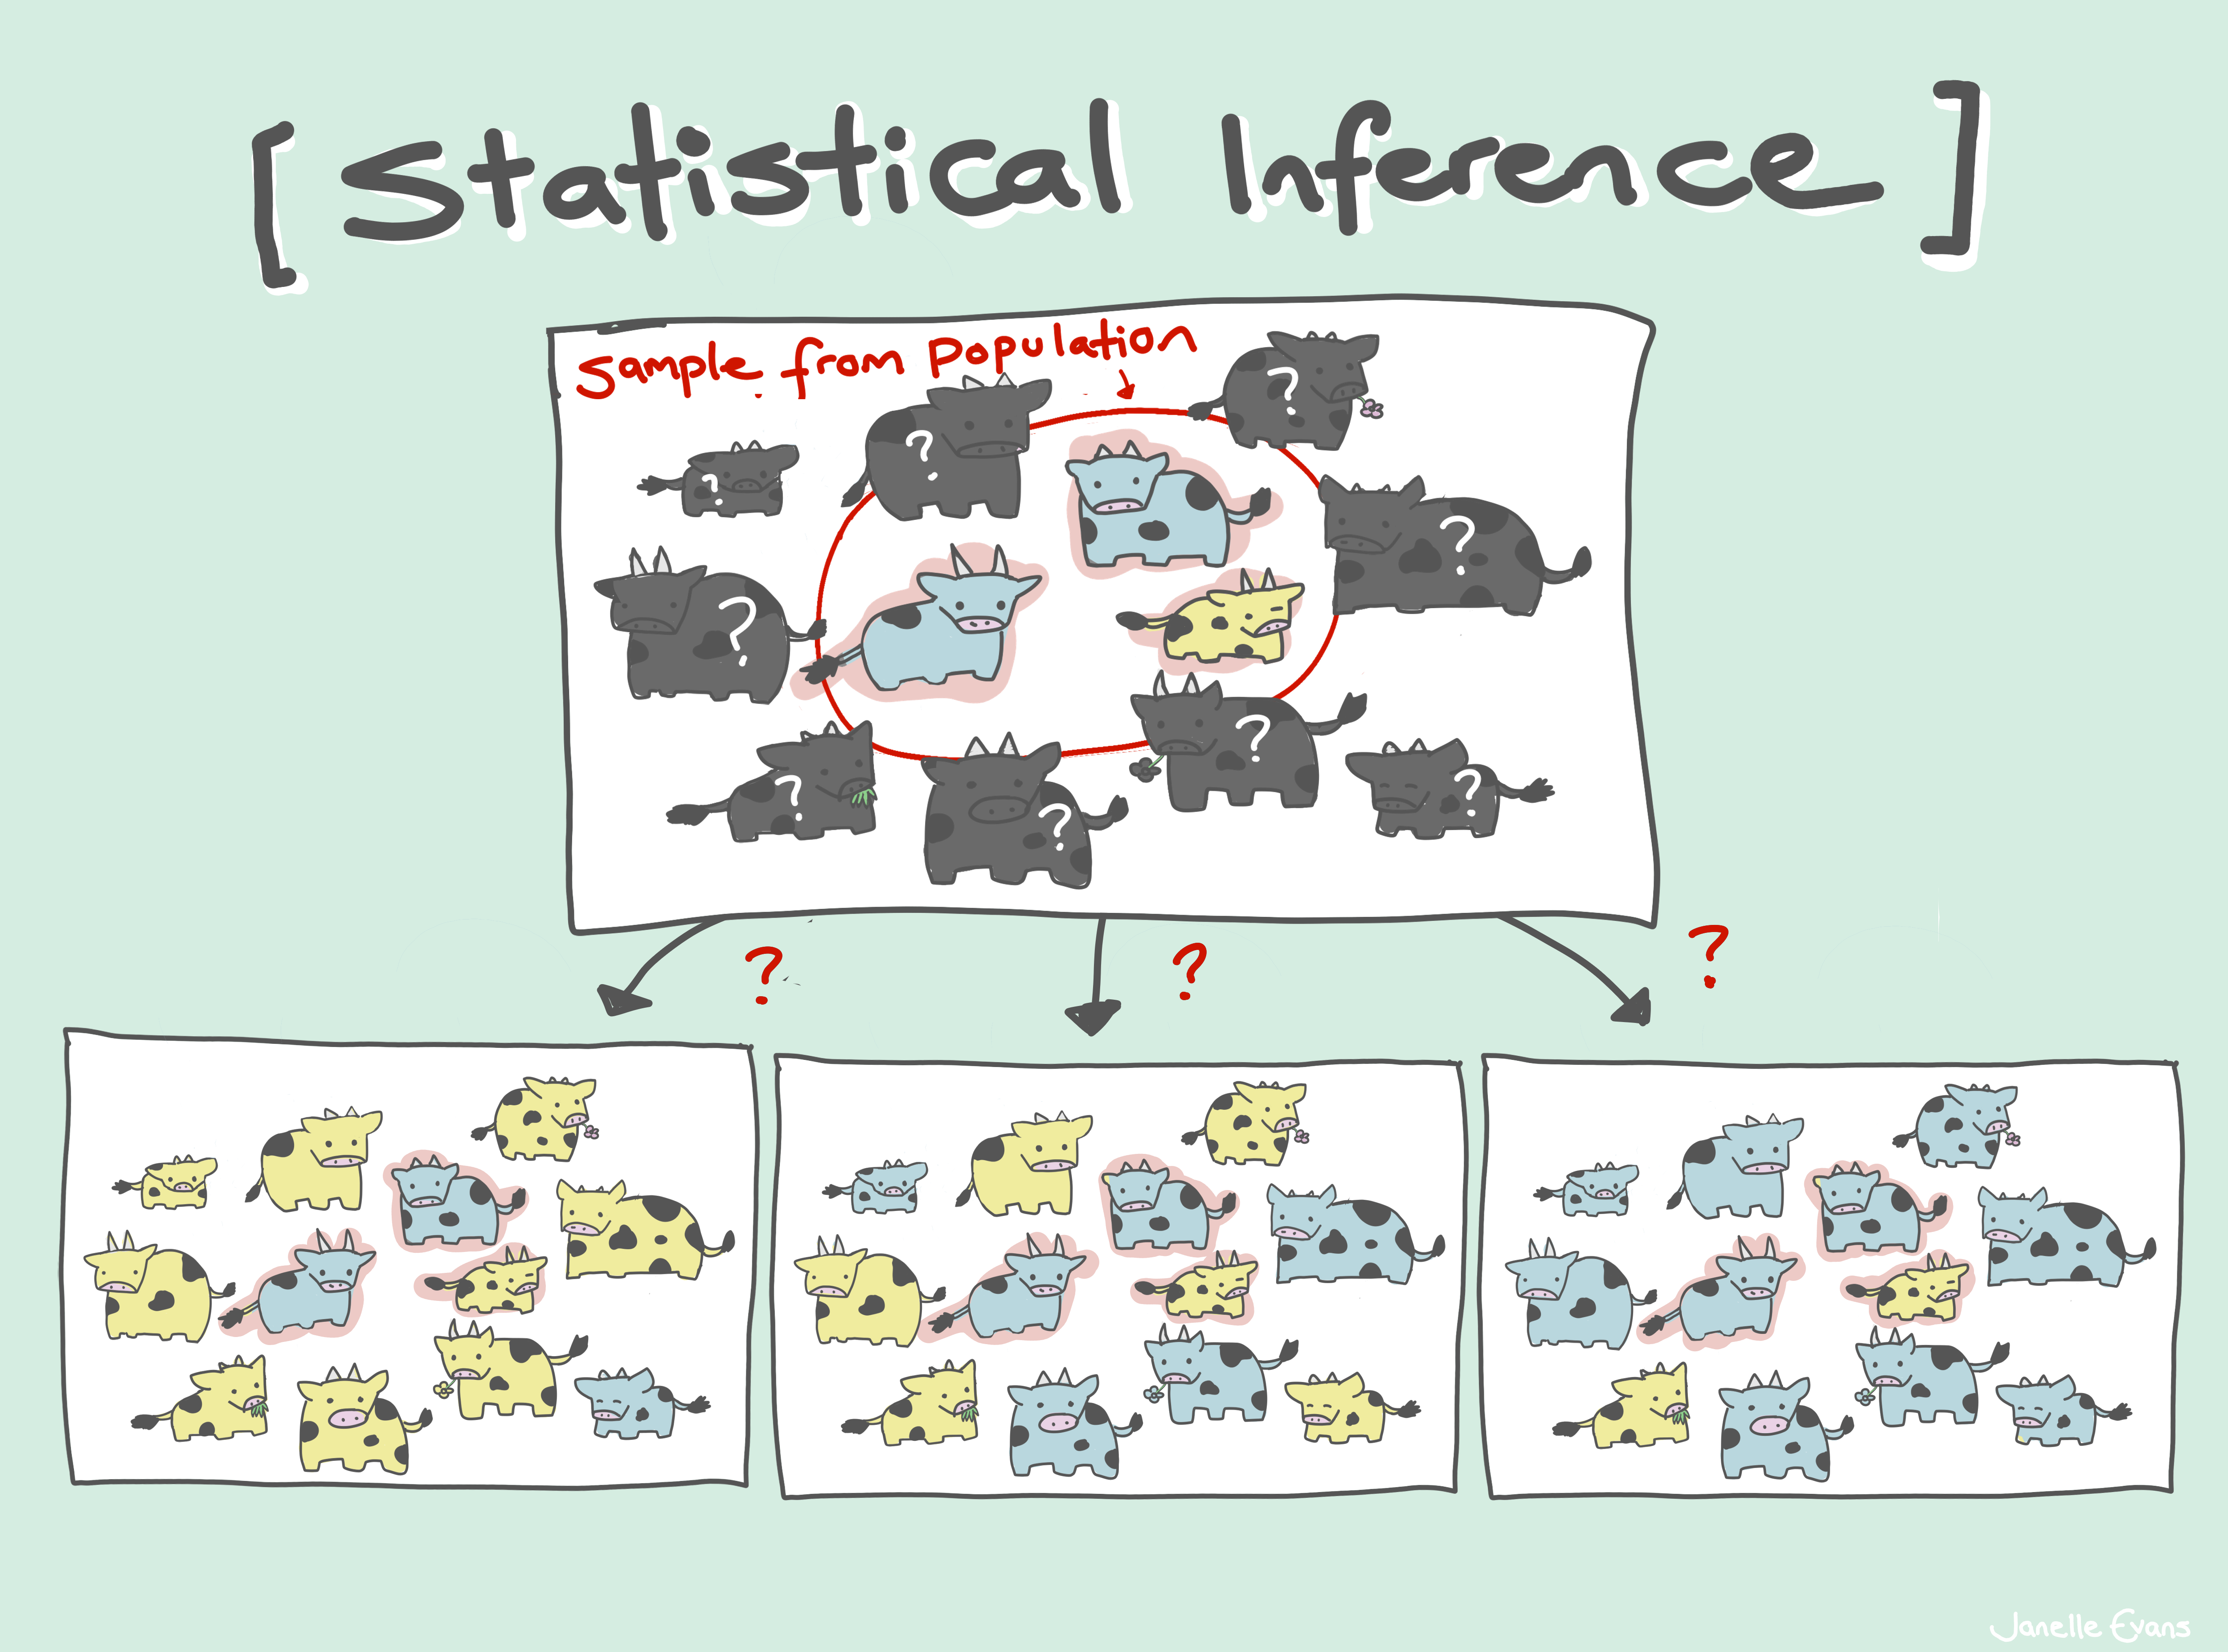 [Statistical Inference]
Sample from Population
?
?
?
?
?
?
?
?
?
?
?
?
Janelle Evans